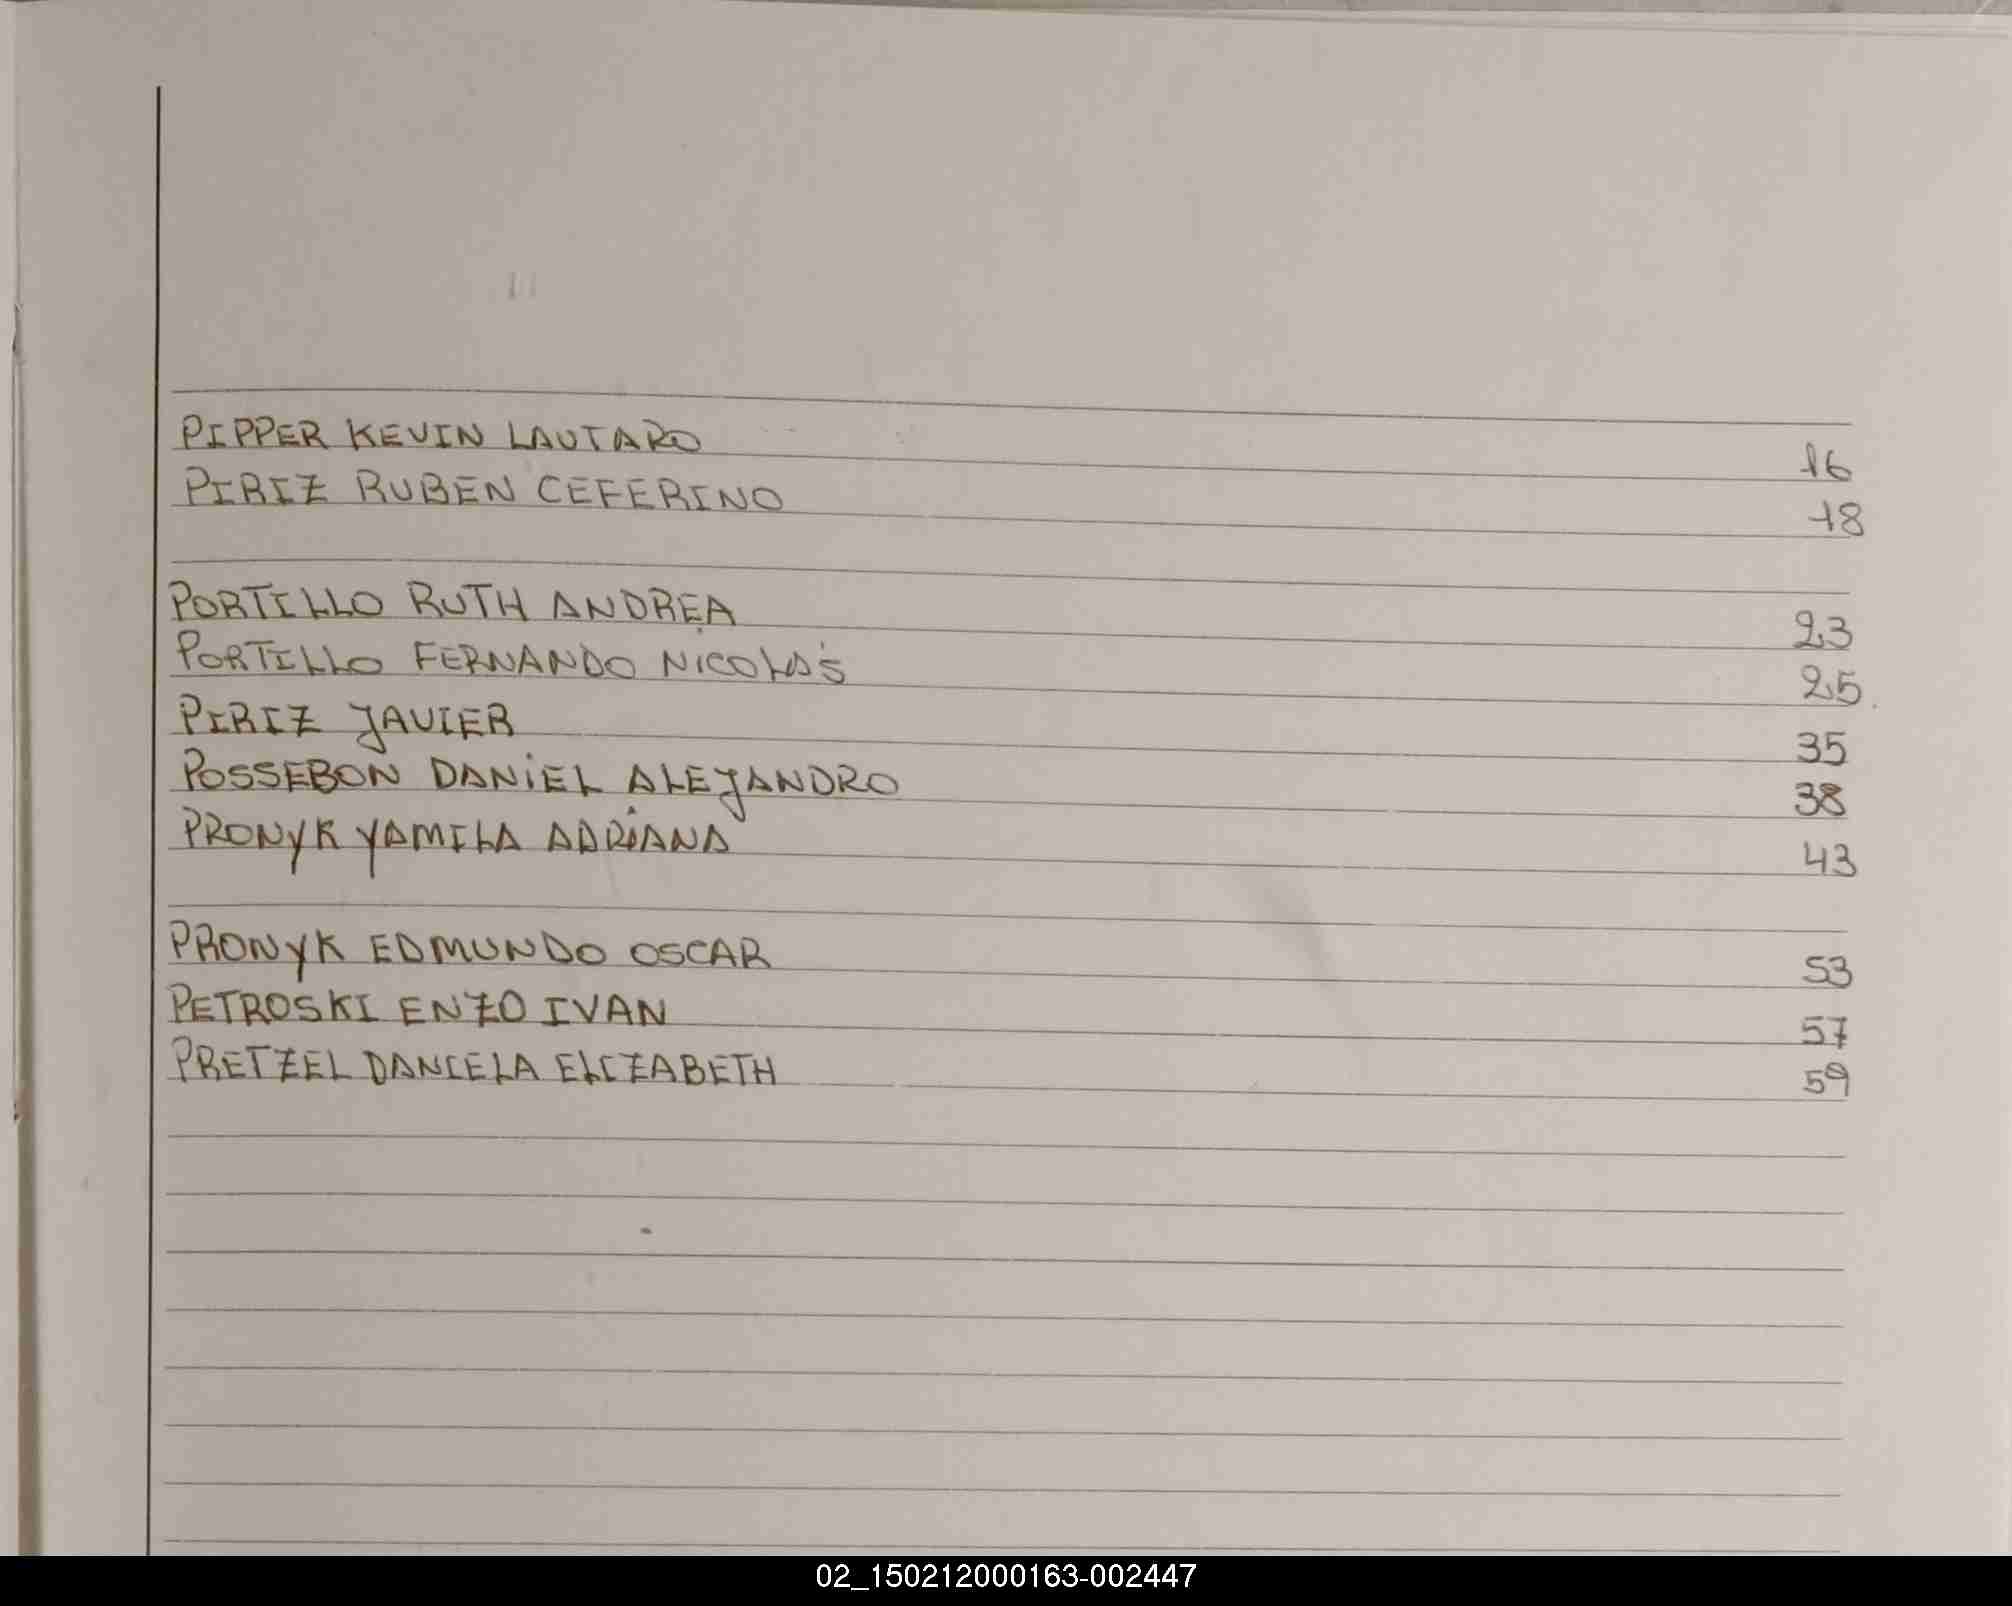 PIPPER KEVIN LAUTARO 16
PIRIZ RUBEN CEFERINO 18
PORTILLO RUTH ANDREA 23
PORTILLO FERNANDO NICOLÁS 25
PIRIZ JAVIER 35
POSSEBON DANIEL ALEJANDRO 38
PRONYK YAMILA ADRIANA 43
PRONYK EDMUNDO OSCAR 53
PETROSKI ENZO IVAN 57
PRETZEL DANIELA ELIZABETH 59
02_150212000163-002447